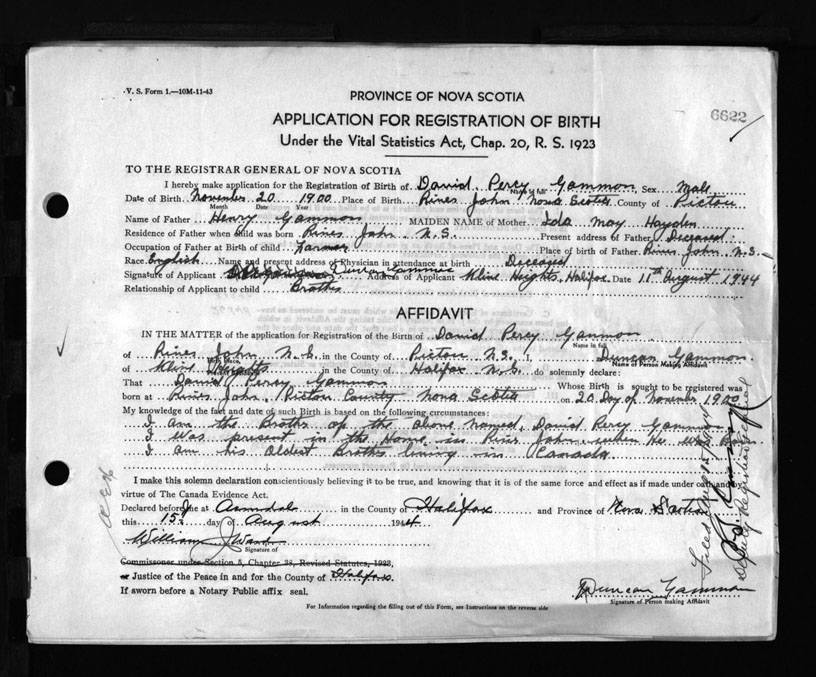 V. S. Form 1.—10M-11-43
PROVINCE OF NOVA SCOTIA
6622
APPLICATION FOR REGISTRATION OF BIRTH
Under the Vital Statistics Act, Chap. 20, R. S. 1923
TO THE REGISTRAR GENERAL OF NOVA SCOTIA
I hereby make application for the Registration of Birth of David Percy Gammon Sex Male
Name in full
Date of Birth November 20 1900 Place of Birth River John Nova Scotia County of Pictou
Month Date Year
Name of Father Henry Gammon MAIDEN NAME of Mother Ida May Hayden
Residence of Father when child was born River John N.S. Present address of Father Deceased
Occupation of Father at Birth of child Farmer Place of birth of Father River John N.S.
Race English Name and present address of Physician in attendance at birth Deceased
Signature of Applicant Duncan Gammon Address of Applicant Kline Heights, Halifax Date 11th August 1944
Relationship of Applicant to child Brother
AFFIDAVIT
IN THE MATTER of the application for Registration of the Birth of David Percy Gammon
Name in full
of River John N.S. in the County of Pictou N.S. I, Duncan Gammon
Name of Person Making Affidavit
of Kline Heights in the County of Halifax N.S. do solemnly declare:
That David Percy Gammon Whose Birth is sought to be registered was
born at River John Pictou County Nova Scotia on 20 Day of November 1900
My knowledge of the fact and date of such Birth is based on the following circumstances:
I am the Brother of the above named David Percy Gammon
I was present in the Home in River John when He was Born
I am his oldest Brother living in Canada
I make this solemn declaration conscientiously believing it to be true, and knowing that it is of the same force and effect as if made under oath and by
virtue of The Canada Evidence Act.
Declared before me at Armdale in the County of Halifax and Province of Nova Scotia
this 15 day of August 1944
William J Ward
Signature of
Commissioner under Section 5, Chapter 38, Revised Statutes, 1923,
or Justice of the Peace in and for the County of Halifax.
If sworn before a Notary Public affix seal.
Duncan Gammon
Signature of Person making Affidavit
For Information regarding the filling out of this Form, see Instructions on the reverse side
Deputy Registrar General